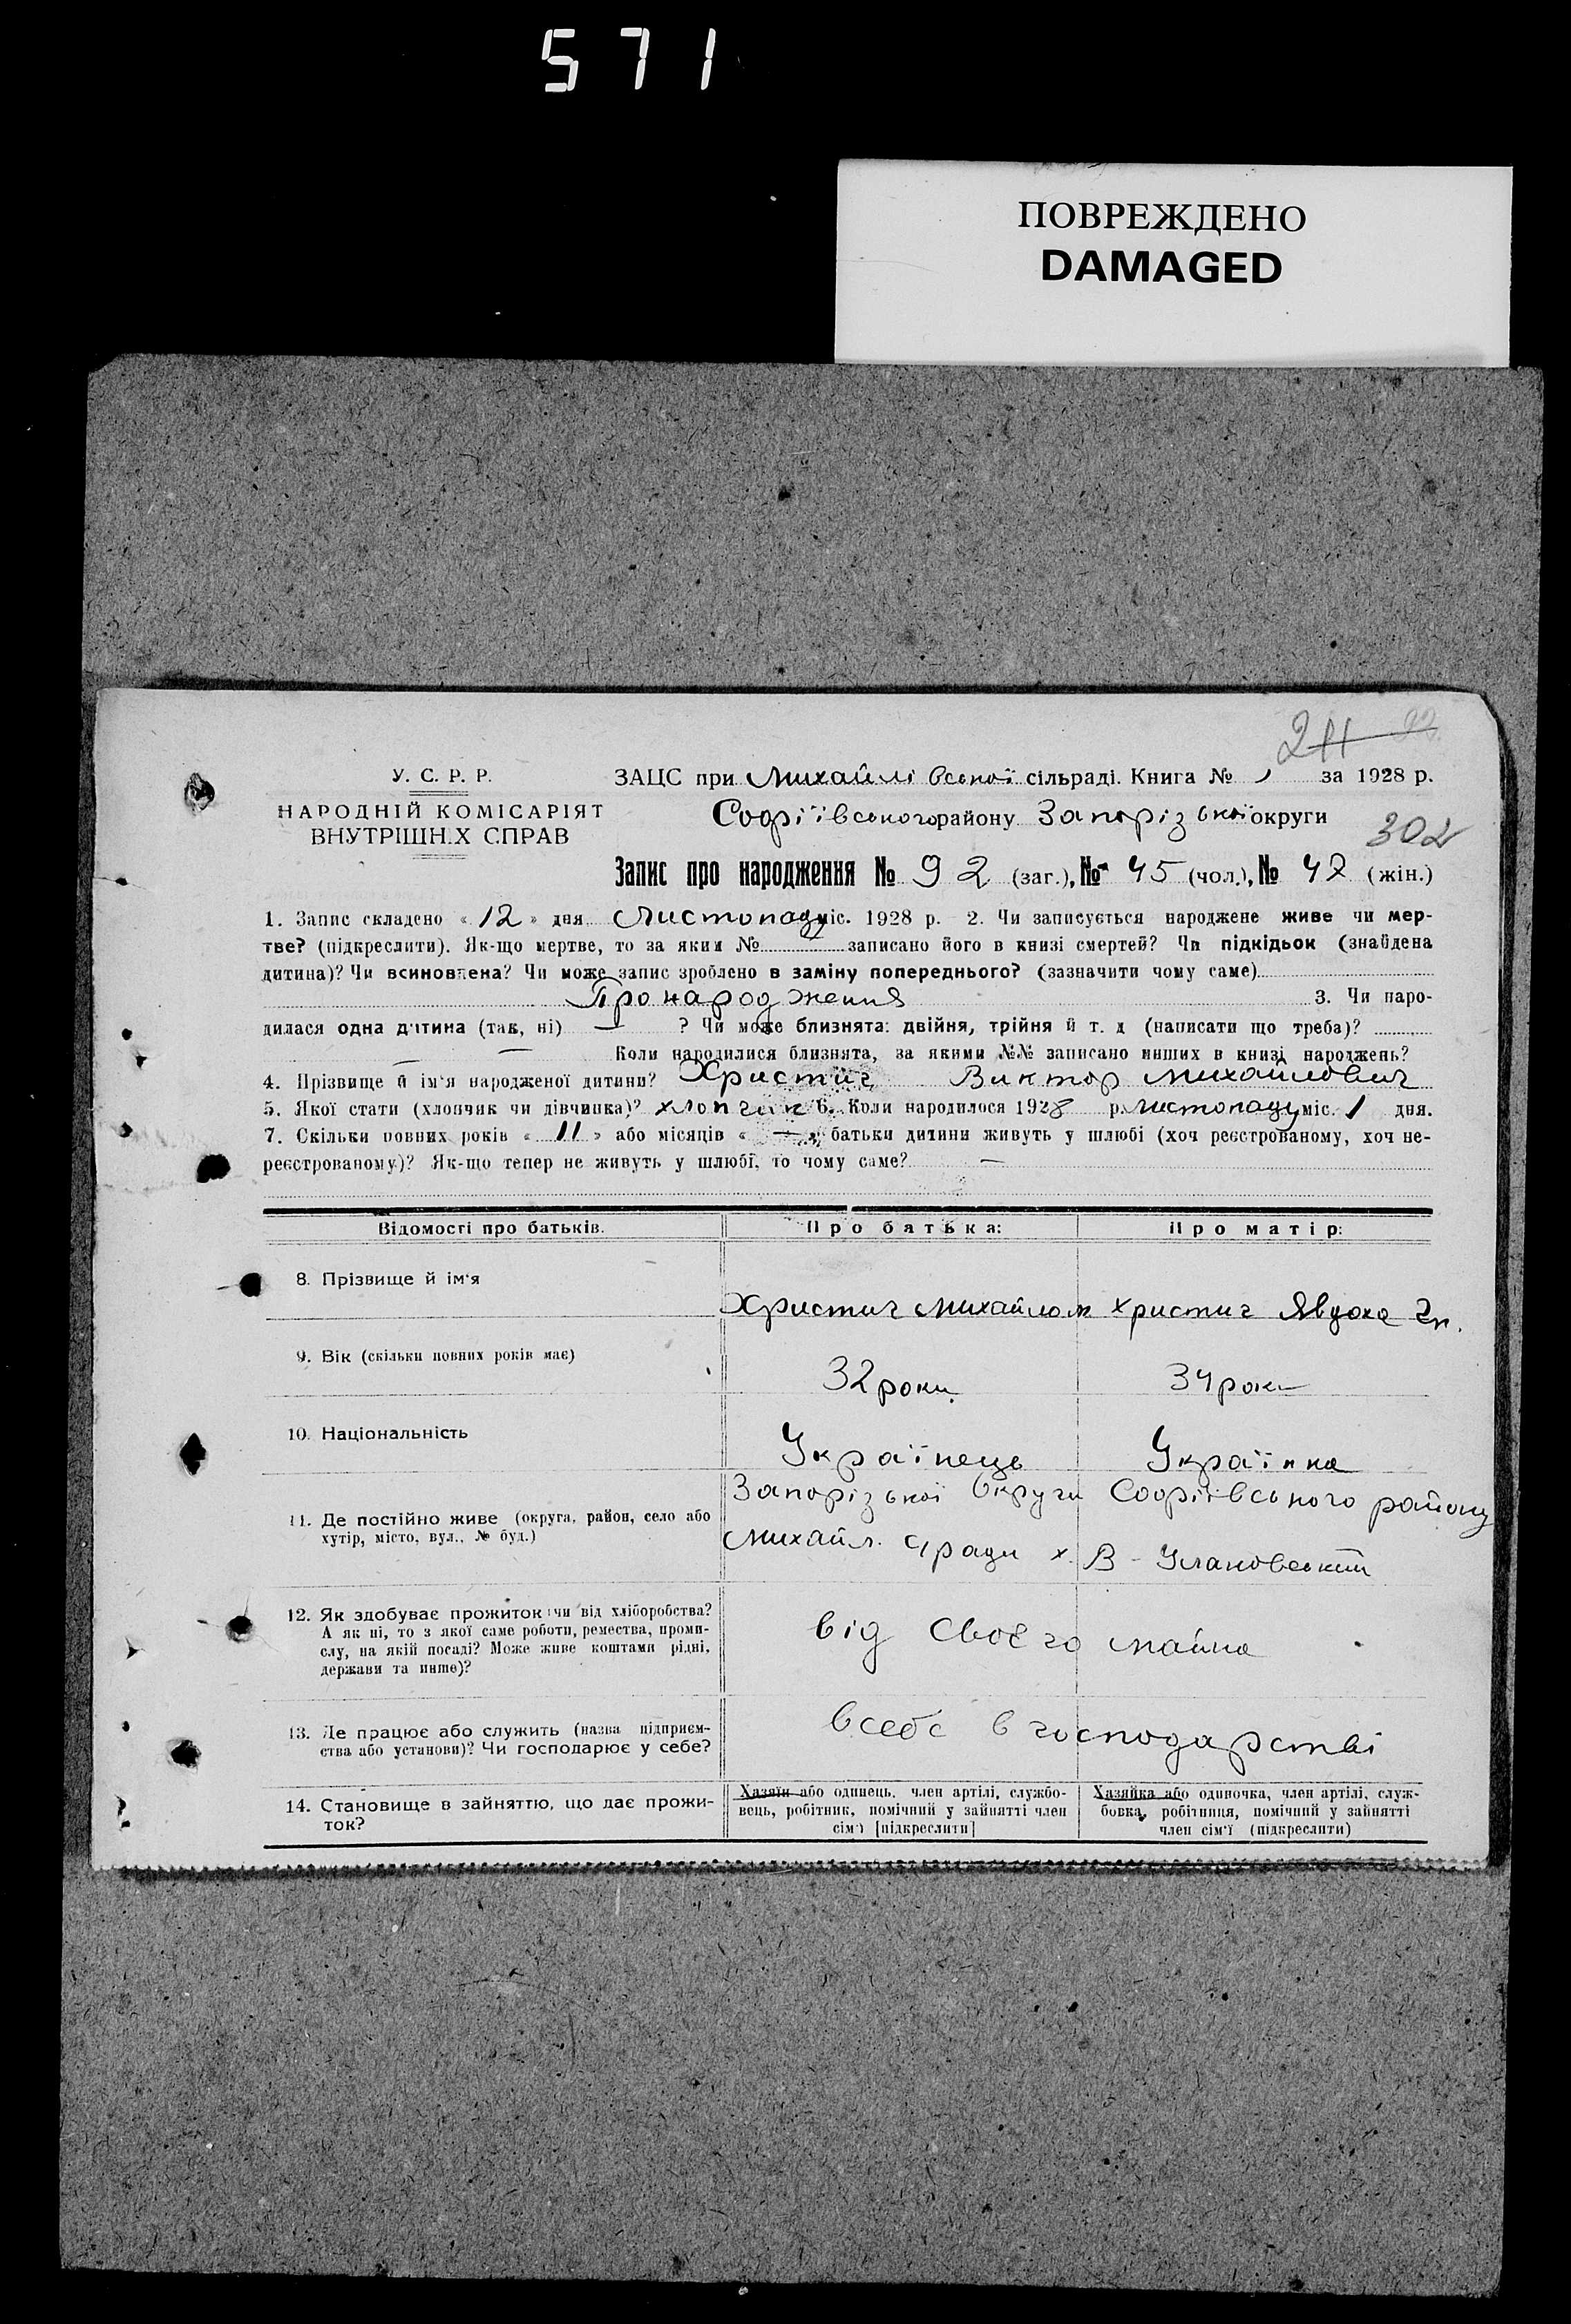 571
ПОВРЕЖДЕНО
DAMAGED
У. С. Р. Р.
НАРОДНІЙ КОМІСАРІЯТ
ВНУТРІШН.Х СПРАВ
ЗАЦС при Михайлівської сільраді. Книга № 1 за 1928 р.
Софіївського району Запорізької округи
302
Запис про народження № 92 (заг.), № 45 (чол.), № 47 (жін.)
1. Запис складено « 12 » дня Листопаду міс. 1928 р. 2. Чи записується народжене живе чи мер-
тве? (підкреслити). Як-що мертве, то за яким № записано його в книзі смертей? Чи підкідьок (знайдена
дитина)? Чи всиновлена? Чи може запис зроблено в заміну попереднього? (зазначити чому саме)
Про народження 3. Чи наро-
дилася одна дитина (так, ні) — ? Чи може близнята: двійня, трійня й т. д (написати що треба)?
— — Коли народилися близнята, за якими №№ записано инших в книзі народжень?
4. Прізвище й ім'я народженої дитини? Христич Виктор Михайлович
5. Якої стати (хлопчик чи дівчинка)? хлопчик 6. Коли народилося 1928 р. Листопаду міс. 1 дня.
7. Скільки повних років « 11 » або місяців « — » батьки дитини живуть у шлюбі (хоч реєстрованому, хоч не-
реєстрованому)? Як-що тепер не живуть у шлюбі, то чому саме? —
Відомості про батьків. Про батька: Про матір:
8. Прізвище й ім'я
Христич Михайло м Христич Явдоха Гр.
9. Вік (скільки повних років має)
32 роки 34 роки
10. Національність
Українець Українка
11. Де постійно живе (округа, район, село або
хутір, місто, вул., № буд.)
Запорізької Округи Софіївського району
Михайл. с/ради х. В-Улановський
12. Як здобуває прожиток (чи від хліборобства?
А як ні, то з якої саме роботи, ремества, проми-
слу, на якій посаді? Може живе коштами рідні,
держави та инше)?
від своєго майна
13. Де працює або служить (назва підприєм-
ства або установи)? Чи господарює у себе?
в себе в господарстві
14. Становище в зайняттю, що дає прожи-
ток?
Хазяїн або одинець, член артілі, службо-
вець, робітник, помічний у зайнятті член
сім'ї [підкреслити]
Хазяйка або одиночка, член артілі, служ-
бовка, робітниця, помічний у зайнятті
член сім'ї (підкреслити)